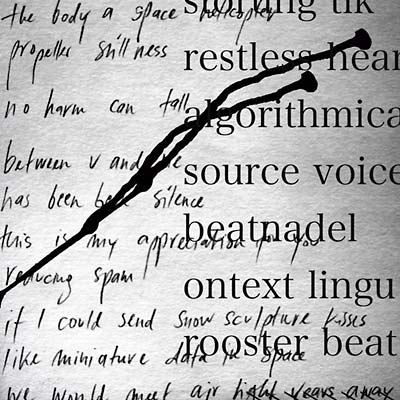 the body a space helicopter
propeller stillness
no harm can fall
between v and me
has been be silence
this is my appreciation for you
reducing spam
if I could send snow sculpture kisses
like miniature data in space
we would meet air light years away
restless hear
algorithmica
source voice
beatnadel
ontext lingu
rooster beat